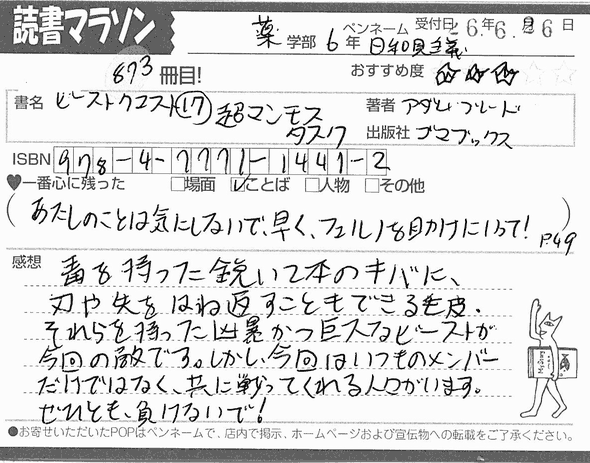 読書マラソン
薬 学部 6年 ペンネーム 日和見主義 受付日 26年6月26日
873 冊目! おすすめ度 ☆☆☆☆☆
書名 ビーストクエスト⑰ 超マンモス タスク
著者 アダム・ブレード
出版社 ゴマブックス
ISBN 978-4-7771-1441-2
♥一番心に残った □場面 ☑ことば □人物 □その他
(あたしのことは気にしないで、早く、フェルノを助けにいって! P.49)
感想 毒を持った鋭い2本のキバに、
刃や矢をはね返すこともできる毛皮。
それらを持った凶暴かつ巨大なビーストが
今回の敵です。しかし、今回はいつものメンバー
だけではなく、共に戦ってくれる人々がいます。
ぜひとも、負けないで!
●お寄せいただいたPOPはペンネームで、店内で掲示、ホームページおよび宣伝物への転載をご了承ください。